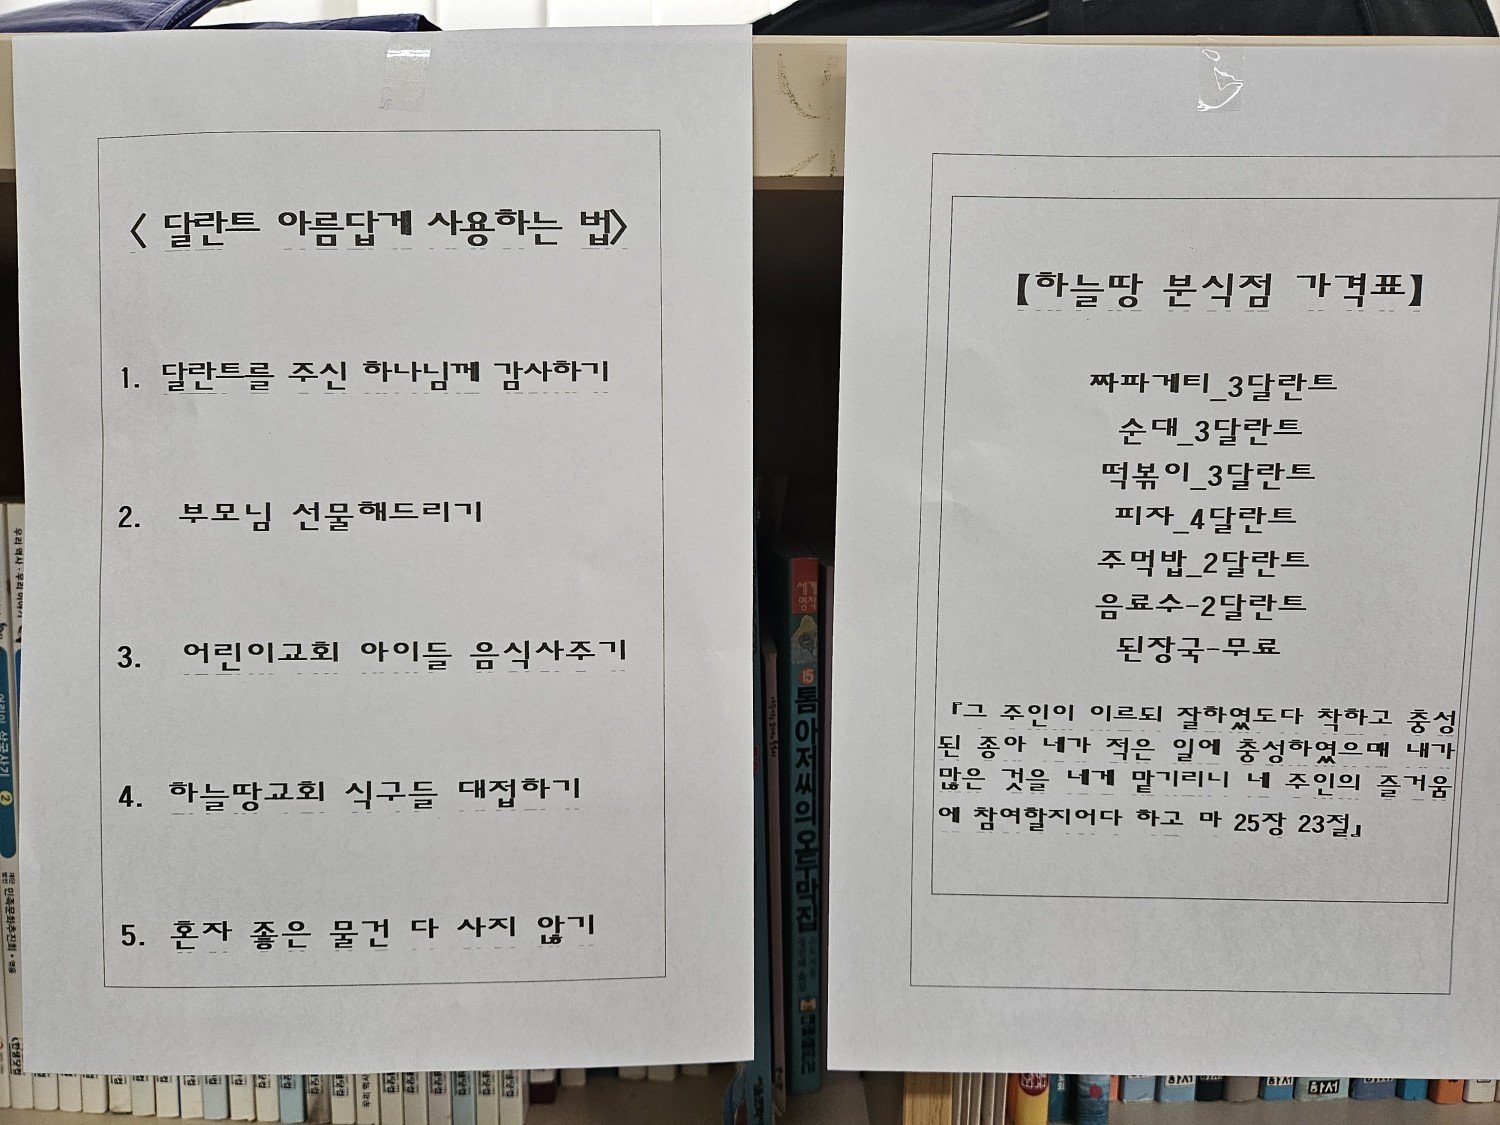 < 달란트 아름답게 사용하는 법>
1. 달란트를 주신 하나님께 감사하기
2. 부모님 선물해드리기
3. 어린이교회 아이들 음식사주기
4. 하늘땅교회 식구들 대접하기
5. 혼자 좋은 물건 다 사지 않기
【하늘땅 분식점 가격표】
짜파게티_3달란트
순대_3달란트
떡볶이_3달란트
피자_4달란트
주먹밥_2달란트
음료수-2달란트
된장국-무료
『그 주인이 이르되 잘하였도다 착하고 충성
된 종아 네가 적은 일에 충성하였으매 내가
많은 것을 네게 맡기리니 네 주인의 즐거움
에 참여할지어다 하고 마 25장 23절』
세계
명작
15
톰 아저씨의 오두막집
우리 역사·우리 이야기
어린이 삼국사기 2